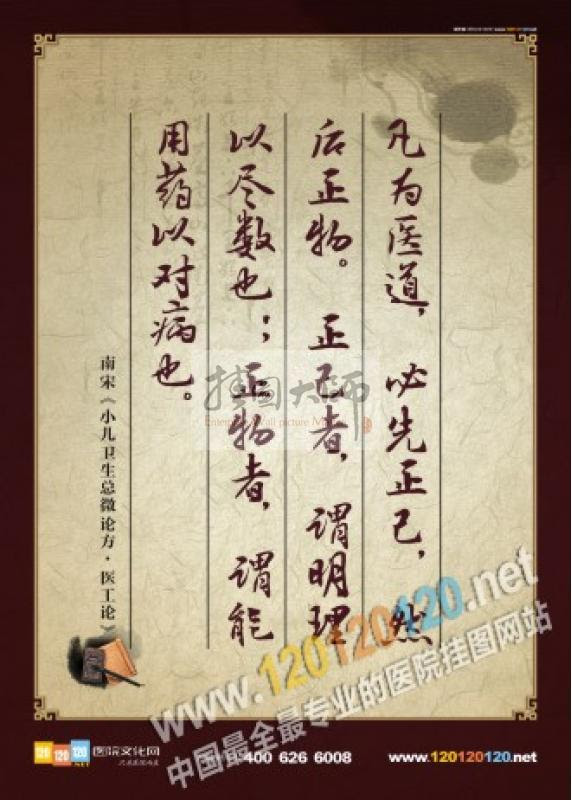 凡为医道，必先正己，然
后正物。正己者，谓明理
以尽数也；正物者，谓能
用药以对病也。
南宋《小儿卫生总微论方·医工论》
挂图大师
www.120120120.net
中国最全最专业的医院挂图网站
120 120 120 医院文化网
400 626 6008
www.120120120.net